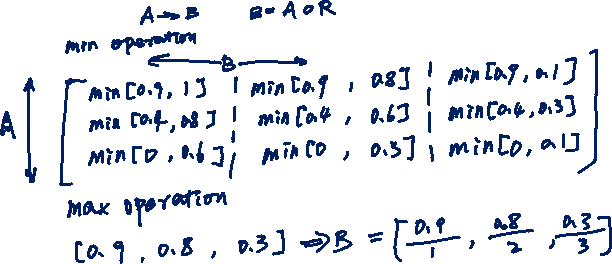 A → B B = A o R
min operation
B
A
min[0.9, 1] | min[0.9, 0.8] | min[0.9, 0.1]
min[0.4, 0.8] | min[0.4, 0.6] | min[0.4, 0.3]
min[0, 0.6] | min[0, 0.3] | min[0, 0.1]
max operation
[0.9, 0.8, 0.3] ⇒ B = [0.9/1, 0.8/2, 0.3/3]